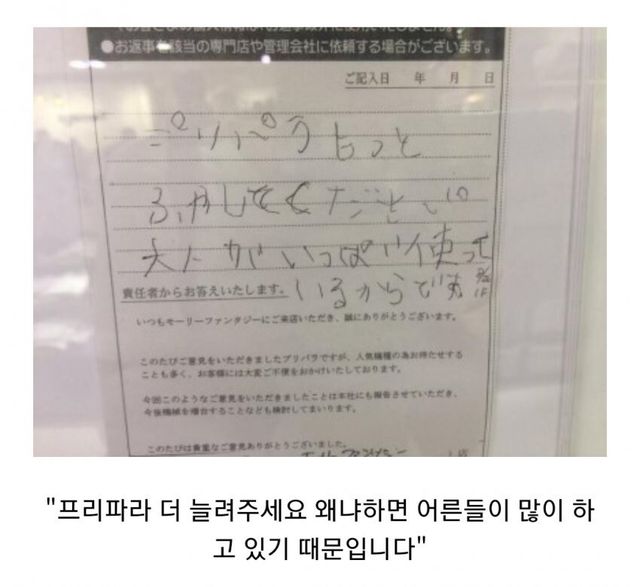 ●お返事を該当の専門店や管理会社に依頼する場合がございます。
ご記入日　年　月　日
プリパラもっと
ふやしてください
大人がいっぱい使って
いるからです
責任者からお答えいたします。
いつもモーリーファンタジーにご来店いただき、誠にありがとうございます。
このたびご意見をいただきましたプリパラですが、人気機種の為お待たせする
ことも多く、お客様には大変ご不便をおかけいたしております。
今回このようなご意見をいただきましたことは本社にも報告させていただき、
今後機械を増台することなども検討してまいります。
このたびは貴重なご意見ありがとうございました。
"프리파라 더 늘려주세요 왜냐하면 어른들이 많이 하
고 있기 때문입니다"